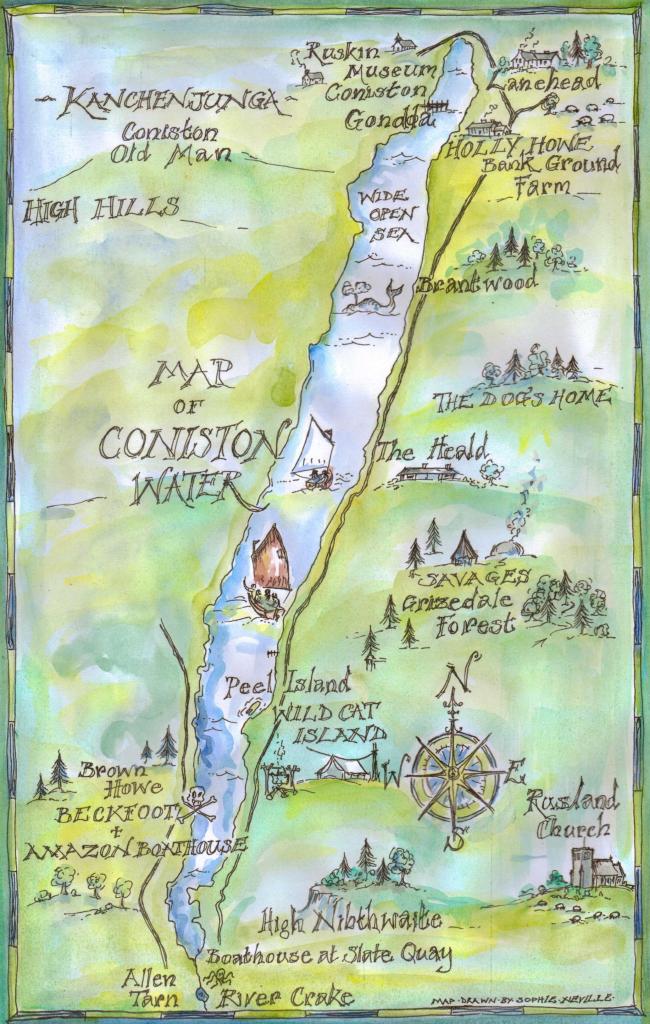 Ruskin
Museum
Coniston
Gondola
Lanehead
HOLLY HOWE
Bank Ground
Farm
KANCHENJUNGA
Coniston
Old Man
HIGH HILLS
WIDE
OPEN
SEA
Brantwood
THE DOG'S HOME
MAP
OF
CONISTON
WATER
The Heald
SAVAGES
Grizedale
Forest
Peel Island
WILD CAT
ISLAND
N
W
E
S
Brown
Howe
BECKFOOT
+
AMAZON BOATHOUSE
Rusland
Church
High Nibthwaite
Boathouse at Slate Quay
Allen
Tarn
River Crake
MAP·DRAWN·BY·SOPHIE·NEVILLE·